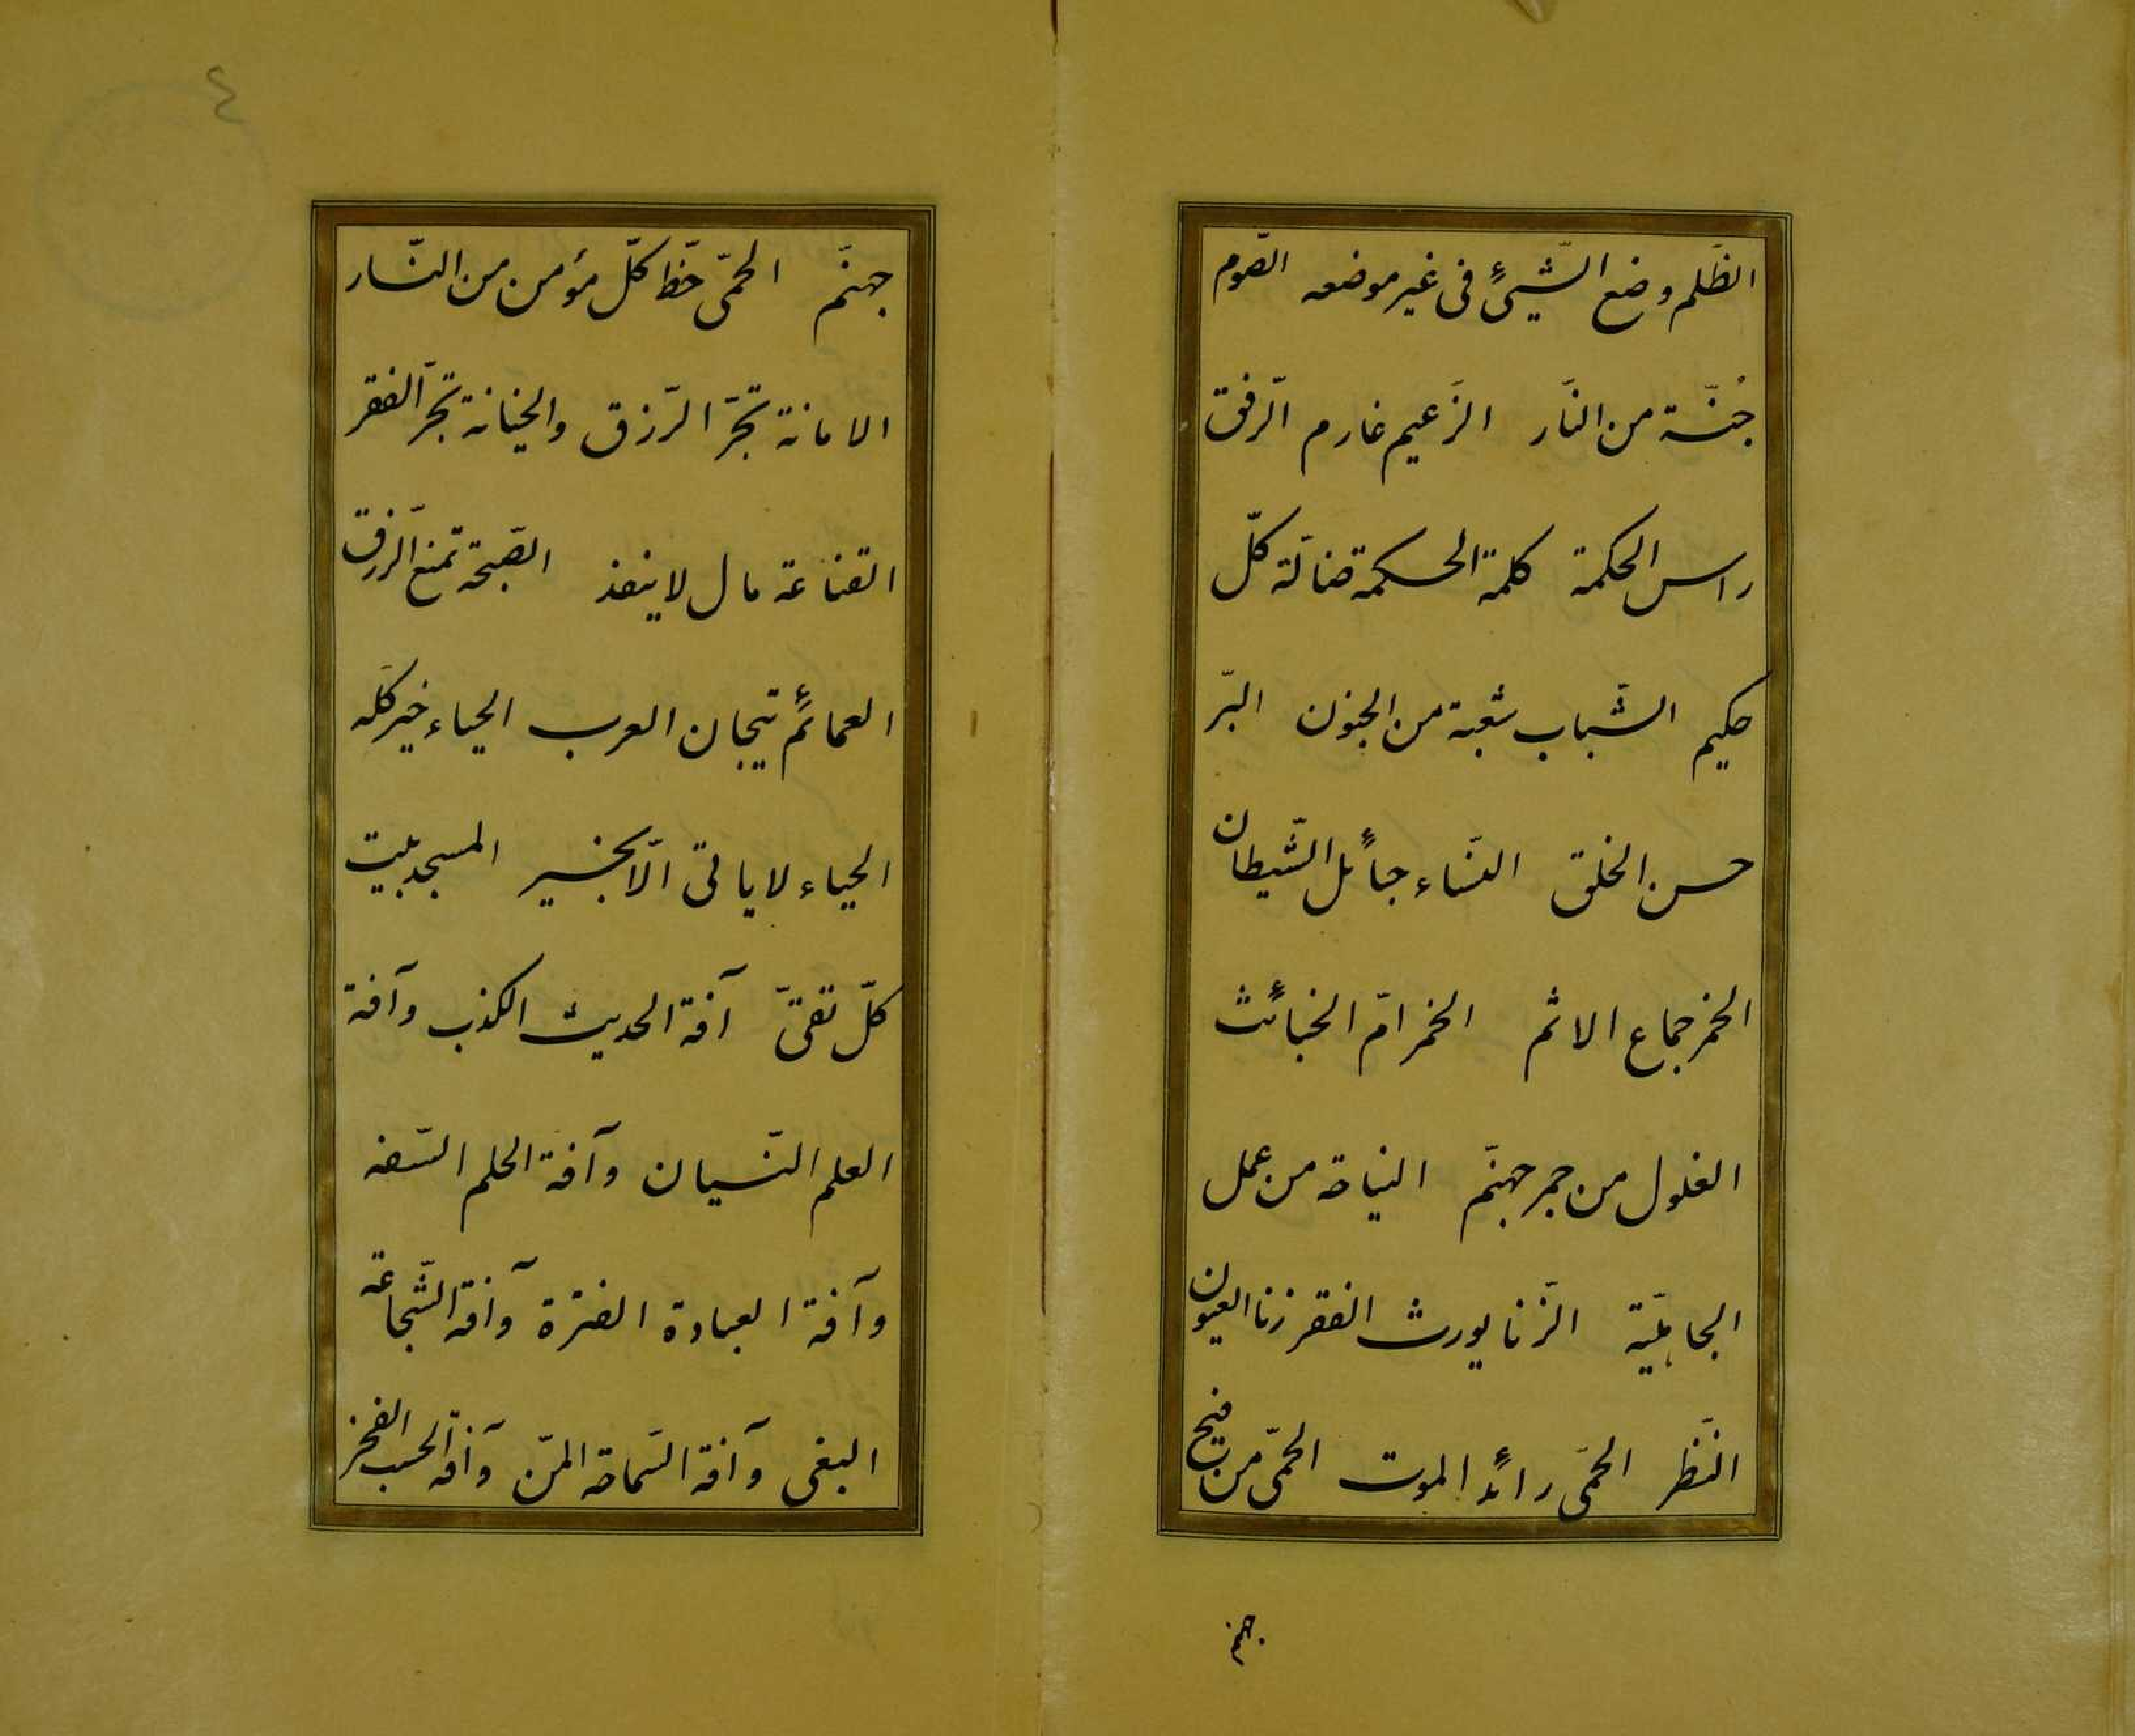 الظّلم وضع الشّئ فى غير موضعه الصّوم
جُنّة من النّار الزّعيم غارم الرّفق
راس الحكمة كلمة الحكمة ضالّة كلّ
حكيم الشّباب شعبة من الجنون البرّ
حسن الخلق النّساء حبائل الشّيطان
الخمر جماع الاثم الخمر امّ الخبائث
الغلول من جمر جهنّم النياحة من عمل
الجاهليّة الزّنا يورث الفقر زنا العيون
النّظر الحمّى رائد الموت الحمّى من فيح
جهنم
٤
جهنّم الحمّى حظّ كلّ مؤمن من النّار
الامانة تجرّ الرّزق والخيانة تجرّ الفقر
القناعة مال لا ينفذ الصّبحة تمنع الرّزق
العمائم تيجان العرب الحياء خير كلّه
الحياء لا ياتى الّا بخير المسجد بيت
كلّ تقىّ آفة الحديث الكذب وآفة
العلم النّسيان وآفة الحلم السّفه
وآفة العبادة الفترة وآفة الشّجاعة
البغى وآفة السّماحة المنّ وآفة الحسب الفخر